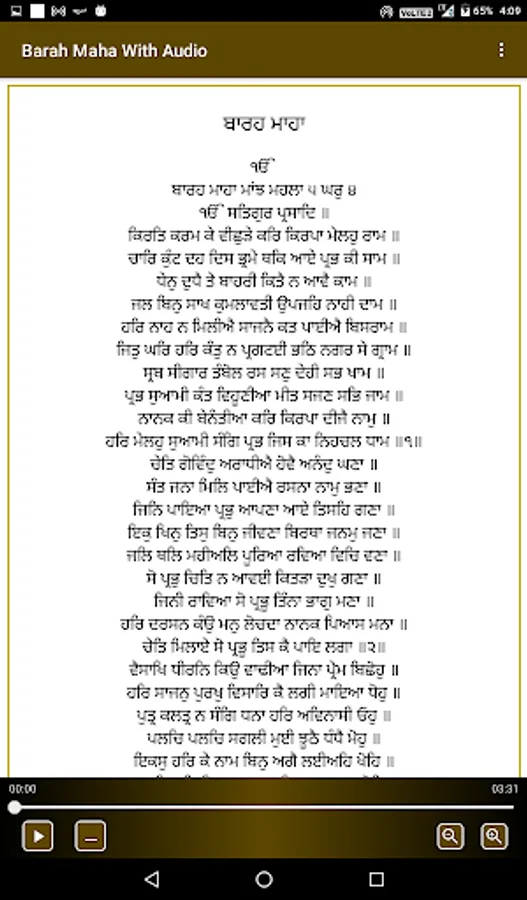 VoLTE2 65% 4:09
Barah Maha With Audio
ਬਾਰਹ ਮਾਹਾ
ੴ
ਬਾਰਹ ਮਾਹਾ ਮਾਂਝ ਮਹਲਾ ੫ ਘਰੁ ੪
ੴ ਸਤਿਗੁਰ ਪ੍ਰਸਾਦਿ ॥
ਕਿਰਤਿ ਕਰਮ ਕੇ ਵੀਛੁੜੇ ਕਰਿ ਕਿਰਪਾ ਮੇਲਹੁ ਰਾਮ ॥
ਚਾਰਿ ਕੁੰਟ ਦਹ ਦਿਸ ਭ੍ਰਮੇ ਥਕਿ ਆਏ ਪ੍ਰਭ ਕੀ ਸਾਮ ॥
ਧੇਨੁ ਦੁਧੈ ਤੇ ਬਾਹਰੀ ਕਿਤੈ ਨ ਆਵੈ ਕਾਮ ॥
ਜਲ ਬਿਨੁ ਸਾਖ ਕੁਮਲਾਵਤੀ ਉਪਜਹਿ ਨਾਹੀ ਦਾਮ ॥
ਹਰਿ ਨਾਹ ਨ ਮਿਲੀਐ ਸਾਜਨੈ ਕਤ ਪਾਈਐ ਬਿਸਰਾਮ ॥
ਜਿਤੁ ਘਰਿ ਹਰਿ ਕੰਤੁ ਨ ਪ੍ਰਗਟਈ ਭਠਿ ਨਗਰ ਸੇ ਗ੍ਰਾਮ ॥
ਸ੍ਰਬ ਸੀਗਾਰ ਤੰਬੋਲ ਰਸ ਸਣੁ ਦੇਹੀ ਸਭ ਖਾਮ ॥
ਪ੍ਰਭ ਸੁਆਮੀ ਕੰਤ ਵਿਹੂਣੀਆ ਮੀਤ ਸਜਣ ਸਭਿ ਜਾਮ ॥
ਨਾਨਕ ਕੀ ਬੇਨੰਤੀਆ ਕਰਿ ਕਿਰਪਾ ਦੀਜੈ ਨਾਮੁ ॥
ਹਰਿ ਮੇਲਹੁ ਸੁਆਮੀ ਸੰਗਿ ਪ੍ਰਭ ਜਿਸ ਕਾ ਨਿਹਚਲ ਧਾਮ ॥੧॥
ਚੇਤਿ ਗੋਵਿੰਦੁ ਅਰਾਧੀਐ ਹੋਵੈ ਅਨੰਦੁ ਘਣਾ ॥
ਸੰਤ ਜਨਾ ਮਿਲਿ ਪਾਈਐ ਰਸਨਾ ਨਾਮੁ ਭਣਾ ॥
ਜਿਨਿ ਪਾਇਆ ਪ੍ਰਭੁ ਆਪਣਾ ਆਏ ਤਿਸਹਿ ਗਣਾ ॥
ਇਕੁ ਖਿਨੁ ਤਿਸੁ ਬਿਨੁ ਜੀਵਣਾ ਬਿਰਥਾ ਜਨਮੁ ਜਣਾ ॥
ਜਲਿ ਥਲਿ ਮਹੀਅਲਿ ਪੂਰਿਆ ਰਵਿਆ ਵਿਚਿ ਵਣਾ ॥
ਸੋ ਪ੍ਰਭੁ ਚਿਤਿ ਨ ਆਵਈ ਕਿਤੜਾ ਦੁਖੁ ਗਣਾ ॥
ਜਿਨੀ ਰਾਵਿਆ ਸੋ ਪ੍ਰਭੂ ਤਿੰਨਾ ਭਾਗੁ ਮਣਾ ॥
ਹਰਿ ਦਰਸਨ ਕੰਉ ਮਨੁ ਲੋਚਦਾ ਨਾਨਕ ਪਿਆਸ ਮਨਾ ॥
ਚੇਤਿ ਮਿਲਾਏ ਸੋ ਪ੍ਰਭੂ ਤਿਸ ਕੈ ਪਾਇ ਲਗਾ ॥੨॥
ਵੈਸਾਖਿ ਧੀਰਨਿ ਕਿਉ ਵਾਢੀਆ ਜਿਨਾ ਪ੍ਰੇਮ ਬਿਛੋਹੁ ॥
ਹਰਿ ਸਾਜਨੁ ਪੁਰਖੁ ਵਿਸਾਰਿ ਕੈ ਲਗੀ ਮਾਇਆ ਧੋਹੁ ॥
ਪੁਤ੍ਰ ਕਲਤ੍ਰ ਨ ਸੰਗਿ ਧਨਾ ਹਰਿ ਅਵਿਨਾਸੀ ਓਹੁ ॥
ਪਲਚਿ ਪਲਚਿ ਸਗਲੀ ਮੁਈ ਝੂਠੈ ਧੰਧੈ ਮੋਹੁ ॥
ਇਕਸੁ ਹਰਿ ਕੇ ਨਾਮ ਬਿਨੁ ਅਗੈ ਲਈਅਹਿ ਖੋਹਿ ॥
00:00 03:31